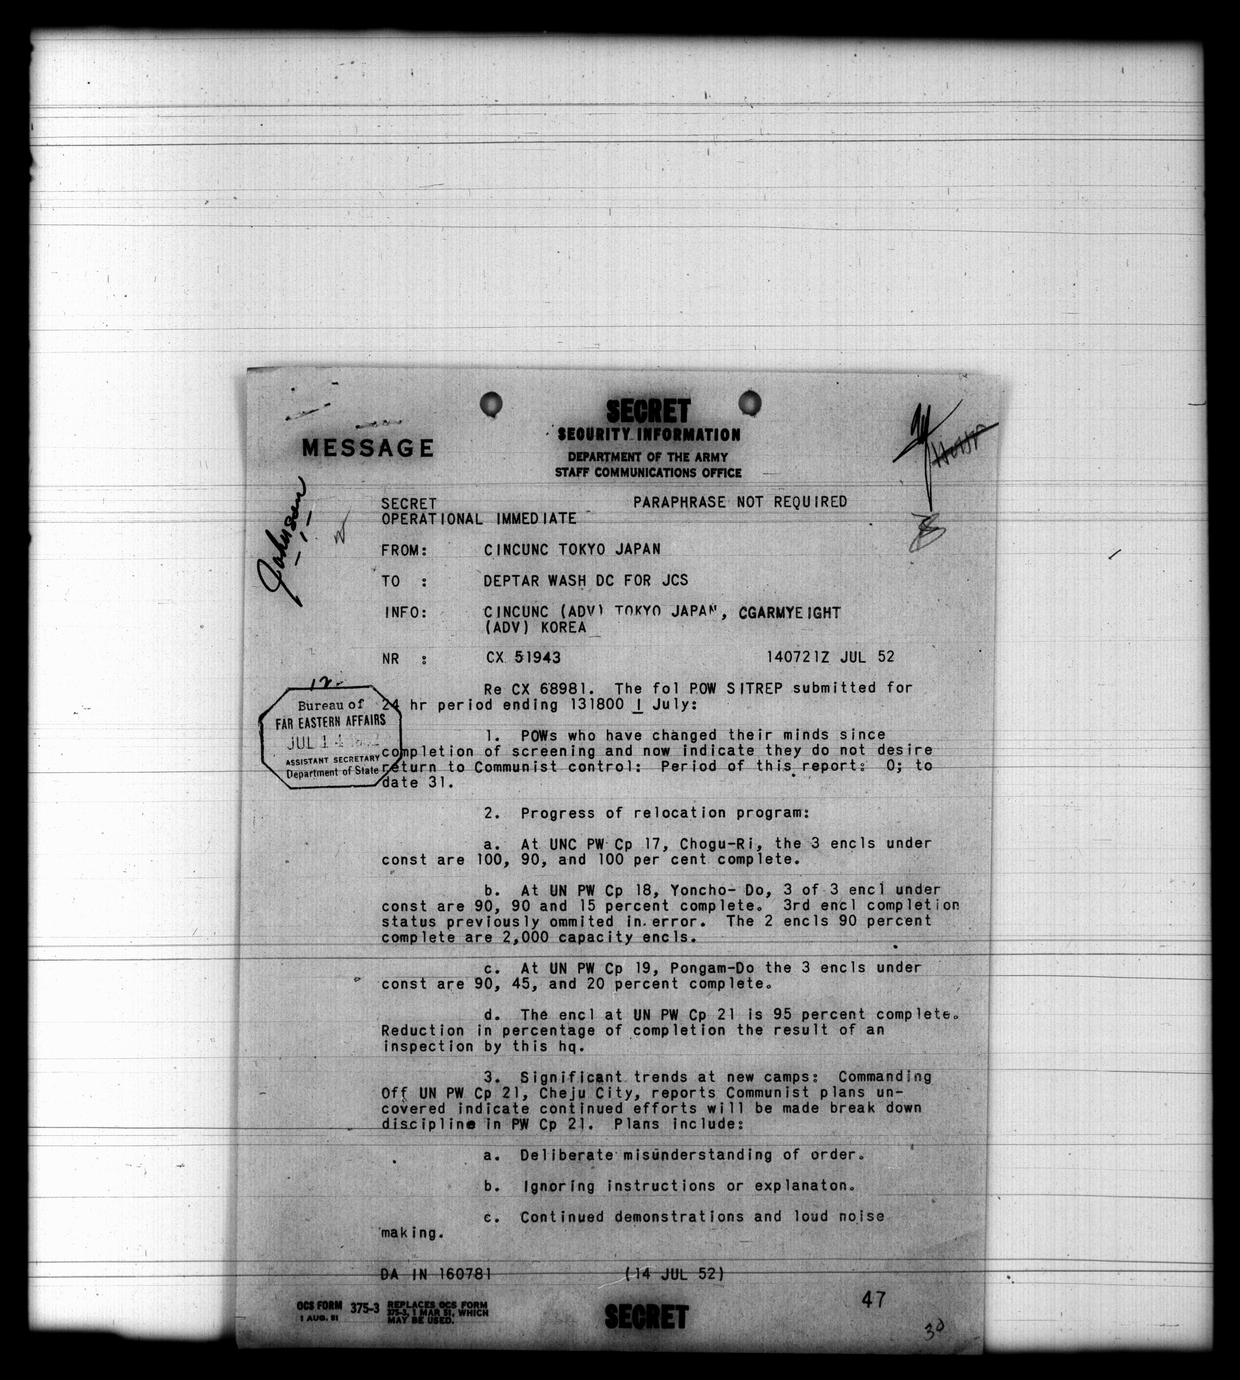 SECRET
SECURITY INFORMATION
MESSAGE
DEPARTMENT OF THE ARMY
STAFF COMMUNICATIONS OFFICE
Johnson
SECRET PARAPHRASE NOT REQUIRED
OPERATIONAL IMMEDIATE
FROM: CINCUNC TOKYO JAPAN
TO : DEPTAR WASH DC FOR JCS
INFO: CINCUNC (ADV) TOKYO JAPAN, CGARMYEIGHT
(ADV) KOREA
NR : CX 51943 140721Z JUL 52
Bureau of
FAR EASTERN AFFAIRS
JUL 14
ASSISTANT SECRETARY
Department of State
Re CX 68981. The fol POW SITREP submitted for
24 hr period ending 131800 I July:
1. POWs who have changed their minds since
completion of screening and now indicate they do not desire
return to Communist control: Period of this report: 0; to
date 31.
2. Progress of relocation program:
a. At UNC PW Cp 17, Chogu-Ri, the 3 encls under
const are 100, 90, and 100 per cent complete.
b. At UN PW Cp 18, Yoncho- Do, 3 of 3 encl under
const are 90, 90 and 15 percent complete. 3rd encl completion
status previously ommited in error. The 2 encls 90 percent
complete are 2,000 capacity encls.
c. At UN PW Cp 19, Pongam-Do the 3 encls under
const are 90, 45, and 20 percent complete.
d. The encl at UN PW Cp 21 is 95 percent complete.
Reduction in percentage of completion the result of an
inspection by this hq.
3. Significant trends at new camps: Commanding
Off UN PW Cp 21, Cheju City, reports Communist plans un-
covered indicate continued efforts will be made break down
discipline in PW Cp 21. Plans include:
a. Deliberate misunderstanding of order.
b. Ignoring instructions or explanaton.
c. Continued demonstrations and loud noise
making.
DA IN 160781 (14 JUL 52)
47
OCS FORM 375-3 REPLACES OCS FORM
1 AUG. 51 375-3, 1 MAR 51, WHICH
MAY BE USED.
SECRET
30